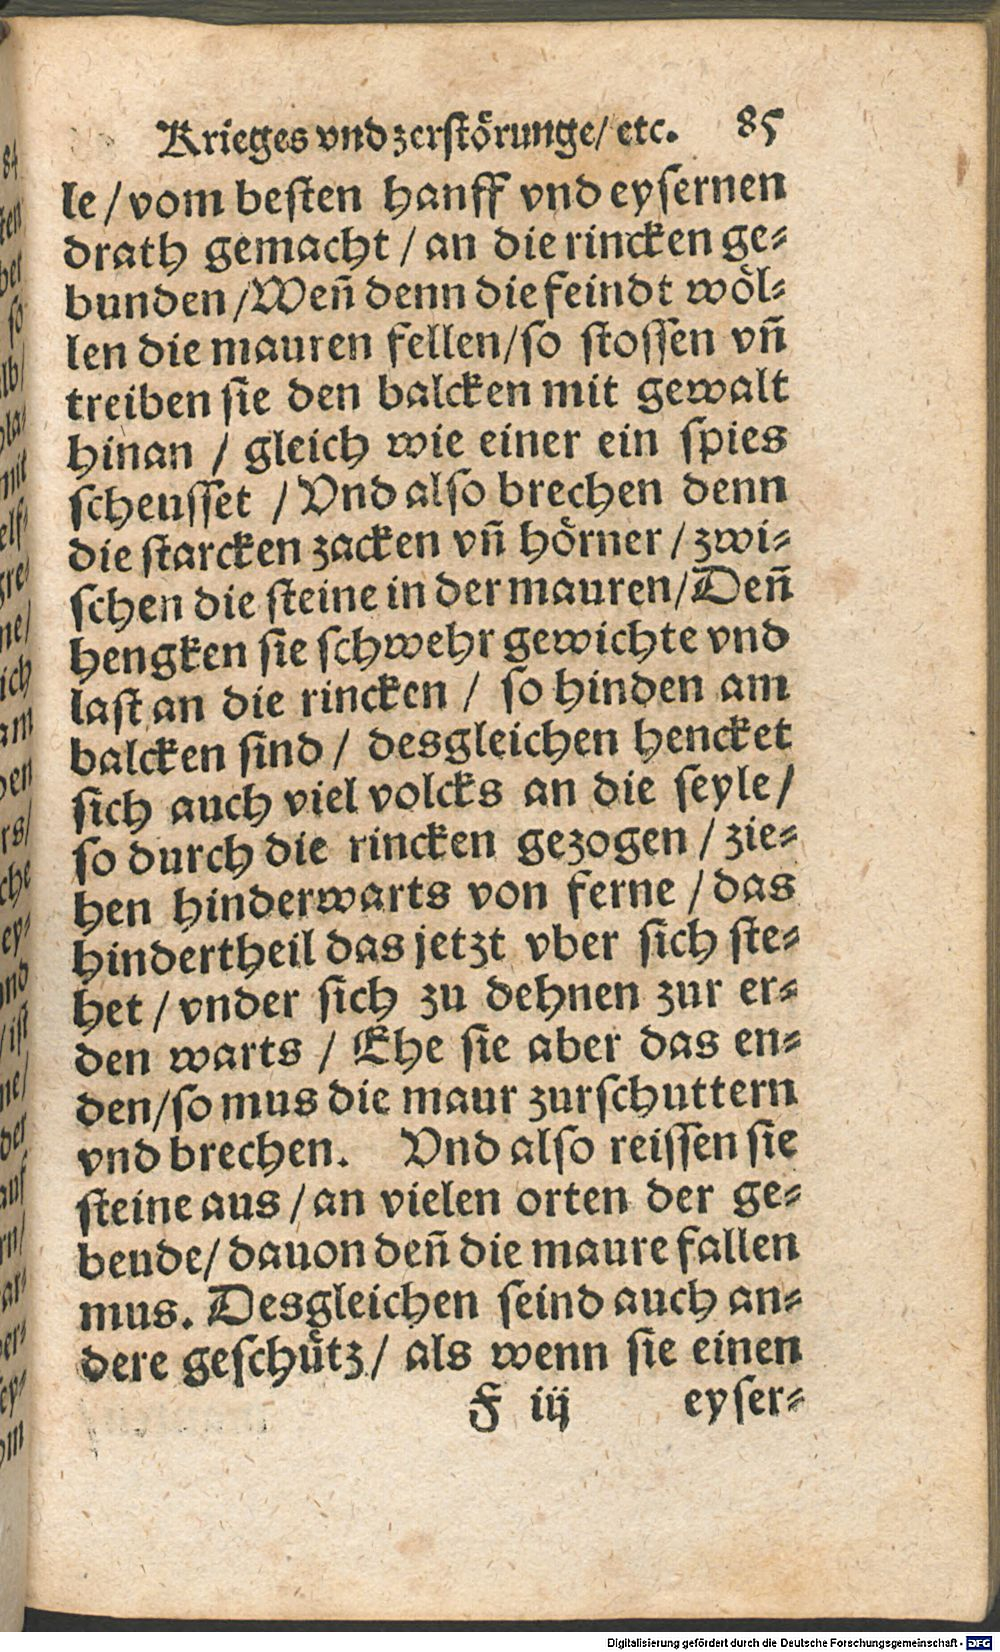 Krieges vnd zerstörunge/ etc. 85
le / vom besten hanff vnd eysernen
drath gemacht / an die rincken ge⸗
bunden /Weñ denn die feindt wöl⸗
len die mauren fellen/so stossen vñ
treiben sie den balcken mit gewalt
hinan / gleich wie einer ein spies
scheusset / Vnd also brechen denn
die starcken zacken vñ hörner / zwi⸗
schen die steine in der mauren/Deñ
hengken sie schwehr gewichte vnd
last an die rincken / so hinden am
balcken sind / desgleichen hencket
sich auch viel volcks an die seyle /
so durch die rincken gezogen / zie⸗
hen hinderwarts von ferne / das
hindertheil das jetzt vber sich ste⸗
het / vnder sich zu dehnen zur er⸗
den warts / Ehe sie aber das en⸗
den/so mus die maur zurschuttern
vnd brechen. Vnd also reissen sie
steine aus / an vielen orten der ge⸗
beude/ dauon deñ die maure fallen
mus. Desgleichen seind auch an⸗
dere geschütz / als wenn sie einen
F iij eyser⸗
Digitalisierung gefördert durch die Deutsche Forschungsgemeinschaft - DFG